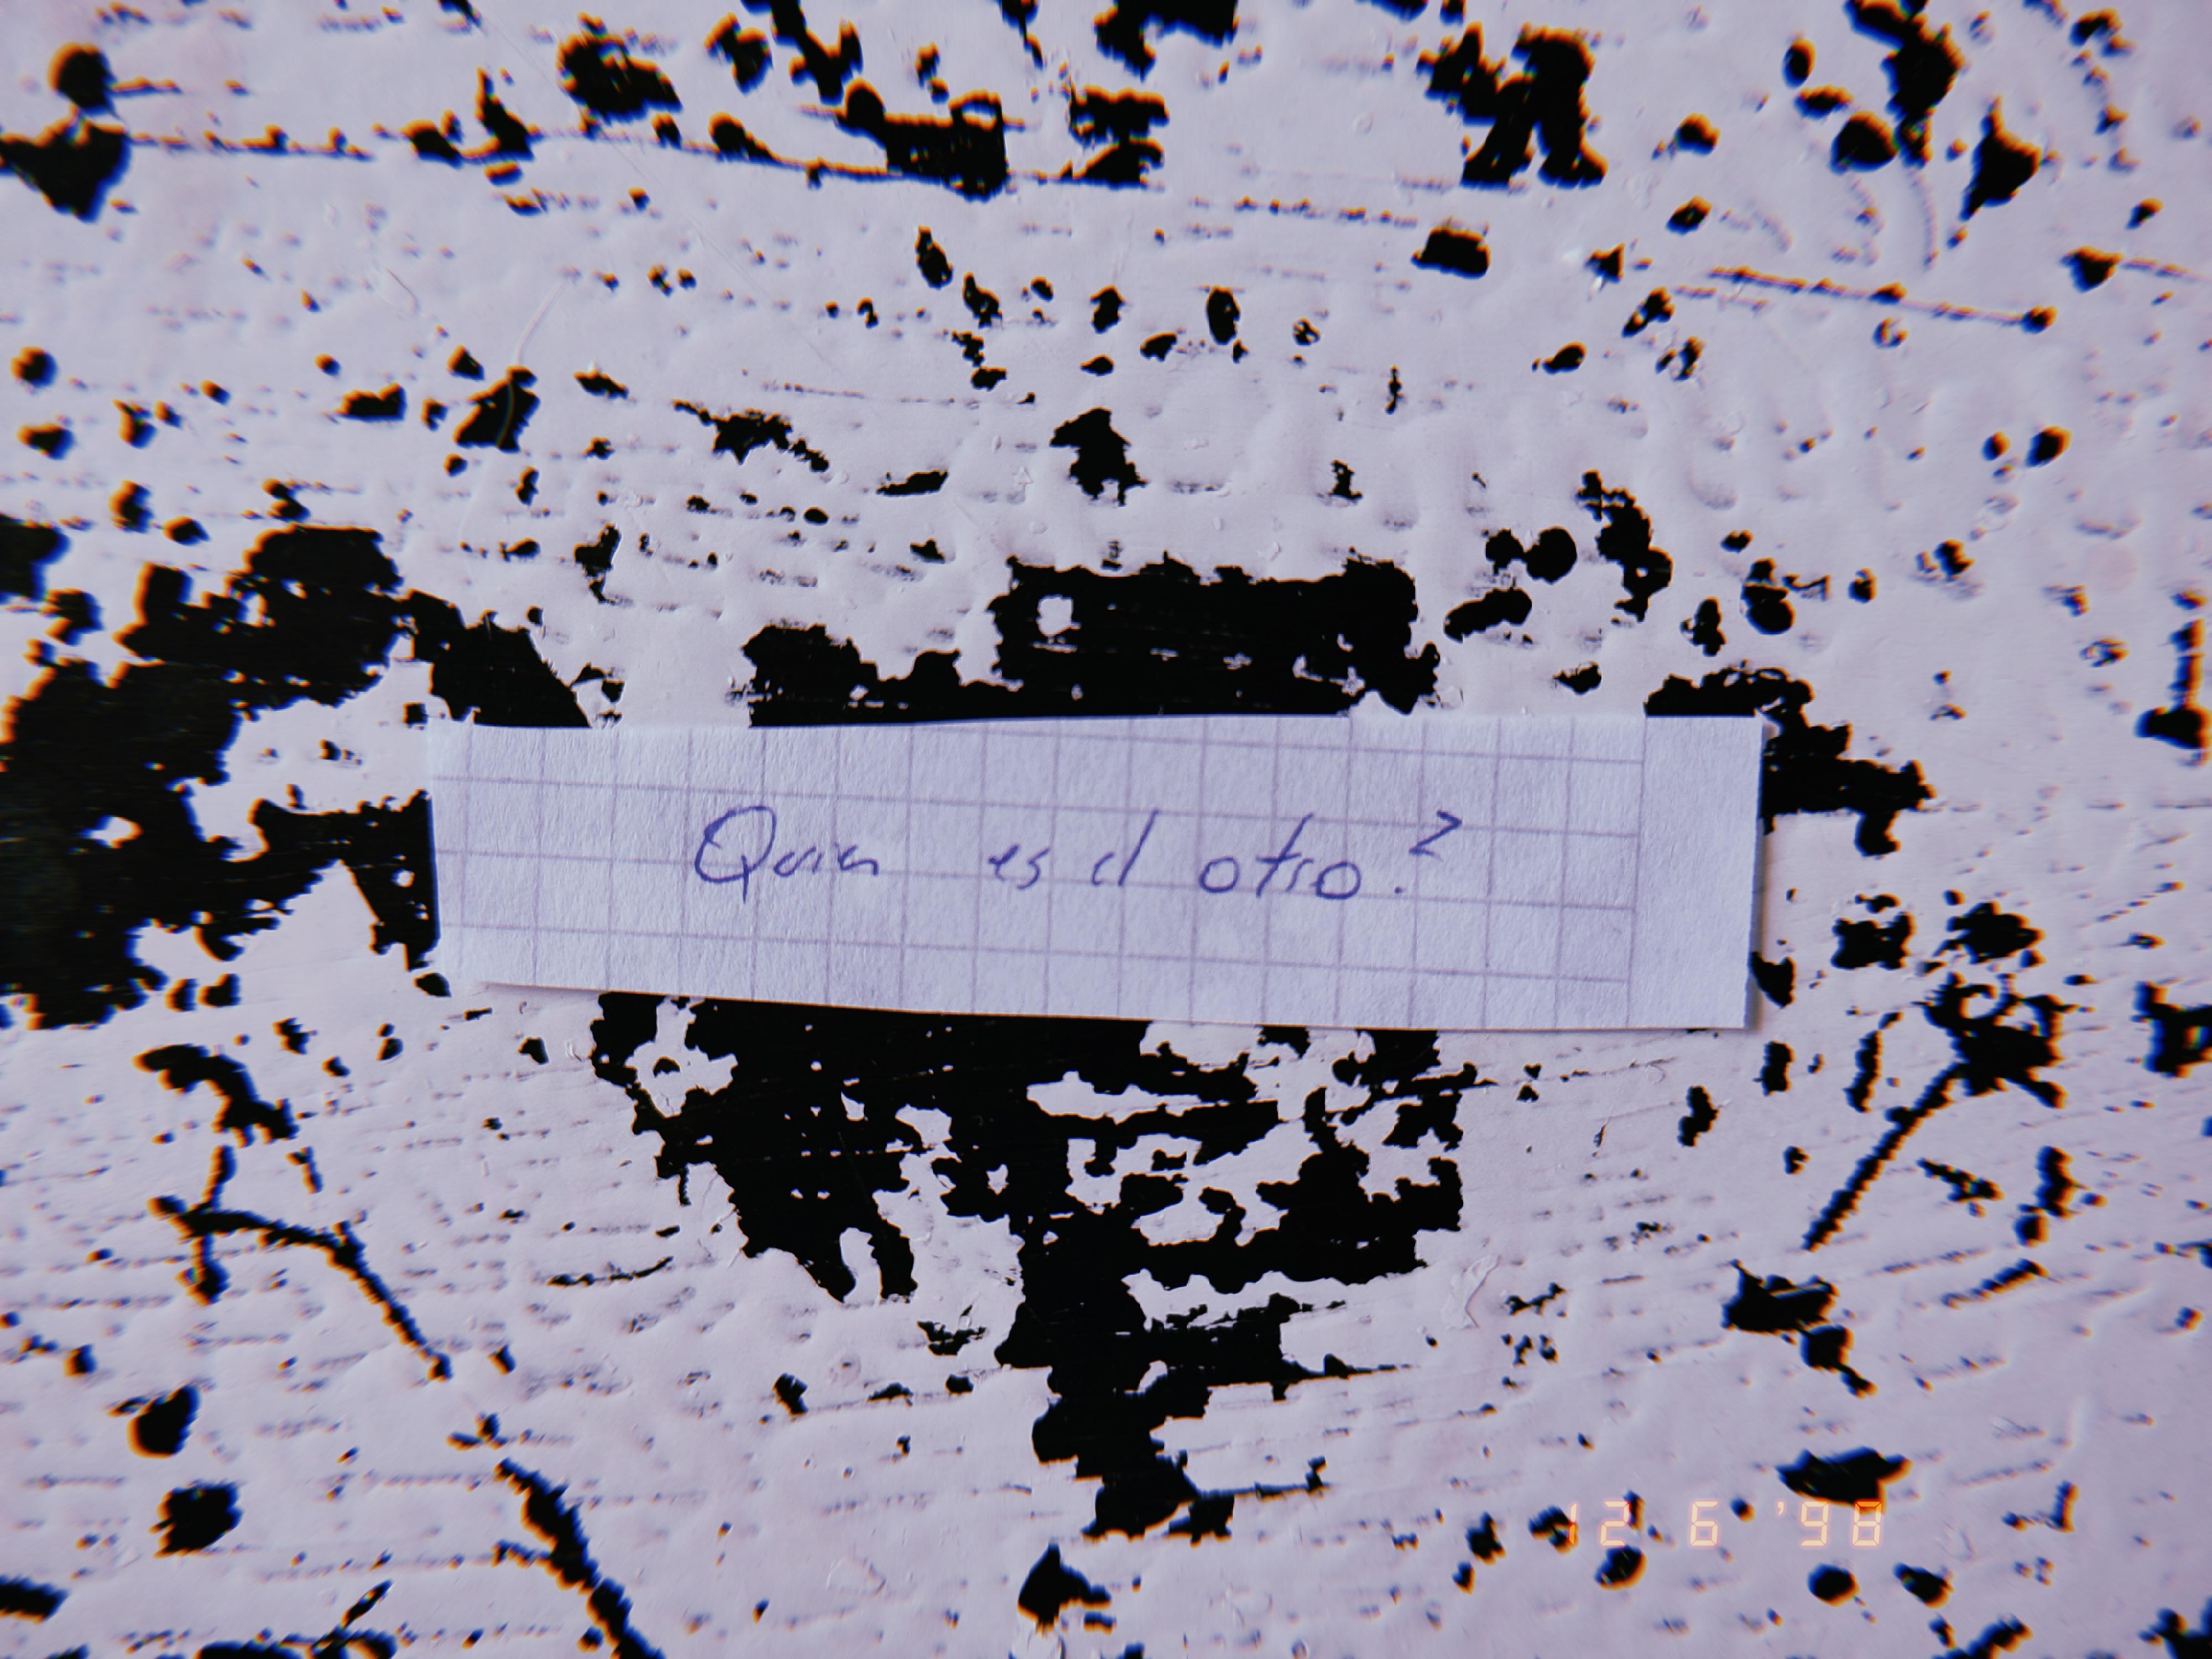 Quien es el otro?
12 6 '98